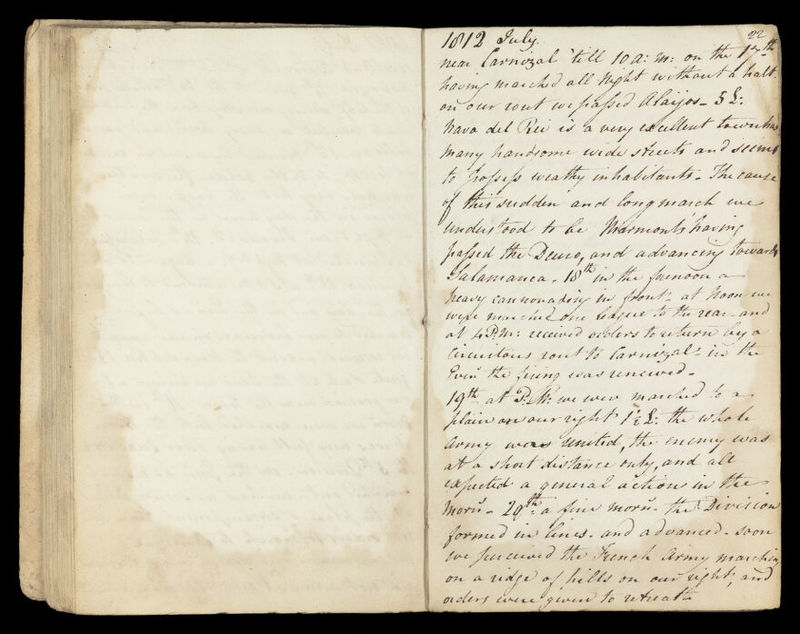 22
1812 July.
near Carnizal 'till 10 a: m: on the 17th
having marched all Night without a halt.
on our rout we passed Alaijos - 5 L:
Nava del Rei is a very excellent town has
many handsome wide streets and seems
to possess weathy inhabitants - The cause
of this sudden and long march we
understood to be Marmont's having
passed the Deuro, and advancing towards
Salamanca. 18th in the forenoon a
heavy cannonading in front - at Noon we
were marched one league to the rear - and
at 4 P.M: received orders to return by a
circuitous rout to Carnizal - in the
Even: the firing was renewed -
19th at P.M: we were marched to a
plain on our right 1½ L: the whole
Army was United, the enemy was
at a short distance only, and all
expected a general actions in the
Morn: - 20th a fine morn: the Division
formed in lines - and advanced - soon
we perceived the French Army marching
on a ridge of hills on our right, and
orders were given to retreat -